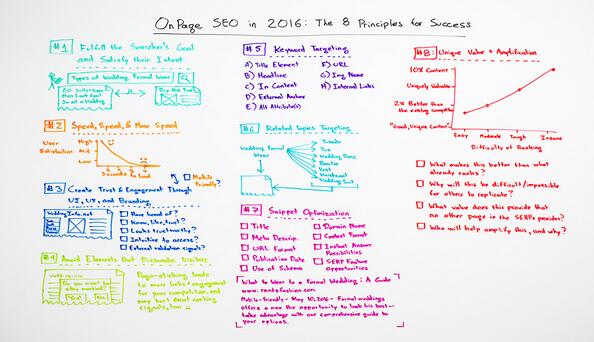 On Page SEO in 2016: The 8 Principles for Success
#1 Fulfill the Searcher's Goal
and Satisfy their Intent
Types of Wedding Formal Wear
Buy this Tux!
#2 Speed, Speed, & More Speed
User
Satisfaction
High
Mid
Low
Seconds to Load
Mobile
Friendly?
#3 Create Trust & Engagement Through
UI, UX, and Branding
WeddingInfo.net
Ever heard of?
Know, like, trust?
Looks trustworthy?
Intuitive to access?
External validation signals?
#4 Avoid Elements that Dissuade Visitors
Do you want to
stay married?
Yes!
No!
Pogo-sticking leads
to more links + engagement
for your competitor, and
may hurt direct ranking
signals, too
#5 Keyword Targeting
A) Title Element
B) Headline
C) In Content
D) External Anchor
E) Alt Attribute(s)
F) URL
G) Img Name
H) Internal Links
#6 Related Topics Targeting
Wedding Formal
Wear
Tuxedo
Tux
Wedding Dress
Bowtie
Vest
Waistcoat
Wedding Suit
#7 Snippet Optimization
Title
Meta Descrip.
URL Format
Publication Date
Use of Schema
Domain Name
Content Format
Instant Answer
Possibilities
SERP Feature
Opportunities
What to Wear to a Formal Wedding: A Guide
Mobile-friendly - May 10, 2016 - Formal weddings
offers a man the opportunity to look his best -
take advantage with our comprehensive guide to
your options.
#8: Unique Value + Amplification
10X Content
Uniquely Valuable
2X Better than
the existing competition
"Good, Unique Content"
Easy
Moderate
Tough
Insane
Difficulty of Ranking
What makes this better than what
already ranks?
Why will this be difficult/impossible
for others to replicate?
What value does this provide that
no other page in the SERPs provides?
Who will help amplify this, and why?